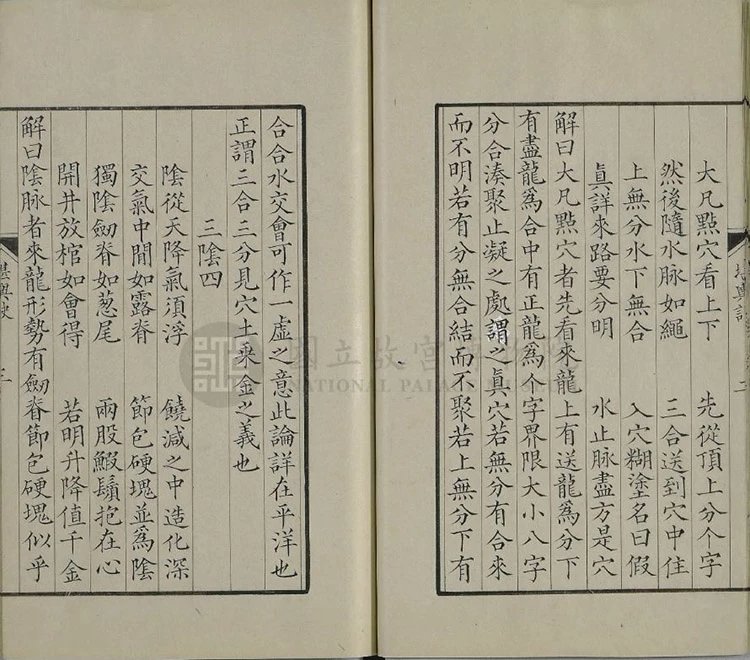 大凡點穴看上下　先從頂上分个字
然後隨水脉如繩　三合送到穴中住
上無分水下無合　入穴糊塗名曰假
眞詳來路要分明　水止脉盡方是穴
解曰大凡點穴者先看來龍上有送龍爲分下
有盡龍爲合中有正龍爲个字界限大小八字
分合湊聚止凝之處謂之眞穴若無分有合來
而不明若有分無合結而不聚若上無分下有
合合水交會可作一虛之意此論詳在平洋也
正謂三合三分見穴土乘金之義也
三陰四
陰從天降氣須浮　饒減之中造化深
交氣中開如露脊　節包硬塊並爲陰
獨陰劒脊如葱尾　兩股鰕鬚抱在心
開井放棺如會得　若明升降值千金
解曰陰脉者來龍形勢有劒脊節包硬塊似乎
堪輿
三
二
國立故宮
NATIONAL PALACE MUSEUM